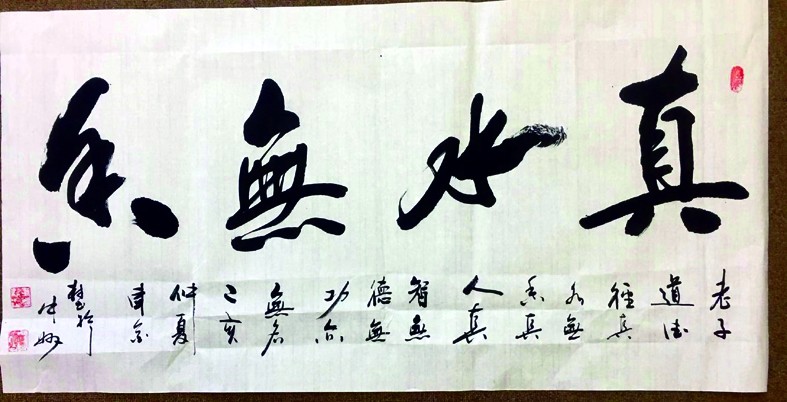 真水無香
老子
道德
經真
水無
香真
人真
智無
德無
功亦
無名
己亥
仲夏
中州